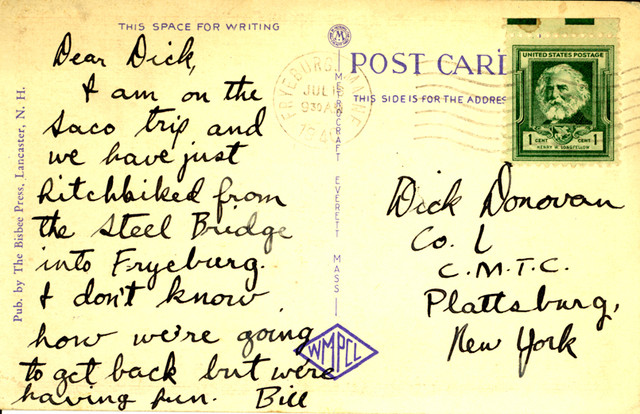 THIS SPACE FOR WRITING
Dear Dick,
I am on the
Saco trip and
we have just
hitchhiked from
the Steel Bridge
into Fryeburg.
I don't know
how we're going
to get back but we're
having fun. Bill
Pub. by The Bisbee Press, Lancaster, N. H.
M
METROCRAFT EVERETT MASS
WMPCL
FRYEBURG, MAINE
JUL
1940
POST CARD
THIS SIDE IS FOR THE ADDRES
UNITED STATES POSTAGE
1 CENT CENT 1
HENRY W. LONGFELLOW
Dick Donovan
Co. L
C.M.T.C.
Plattsburg,
New York